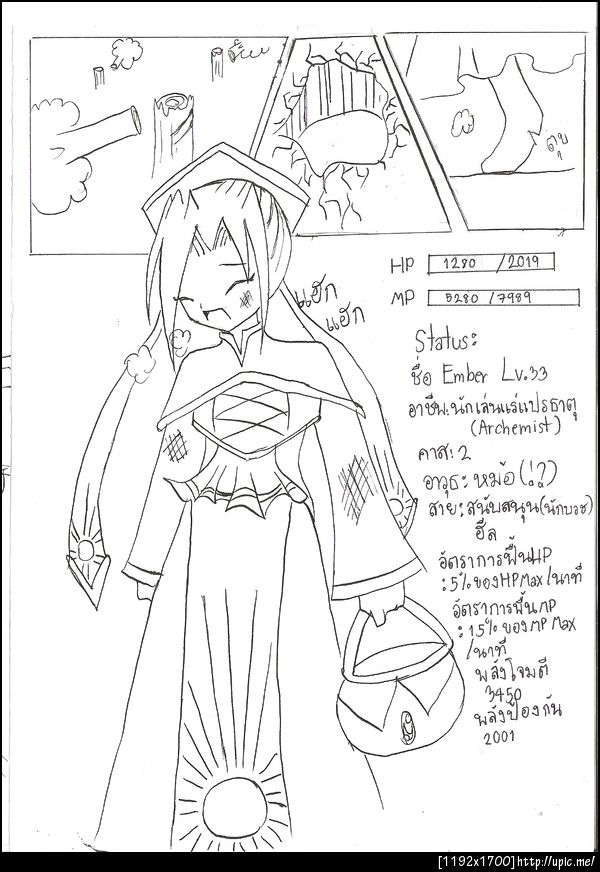 ตุบ
HP 1280 /2019
แฮ้ก
แฮ้ก
MP 5280 /7989
Status:
ชื่อ Ember Lv.33
อาชีพ:นักเล่นแร่แปรธาตุ
(Archemist)
คาส: 2
อาวุธ: หม้อ(!?)
สาย:สนับสนุน(นักบวช)
ฮีล
อัตราการฟื้นHP
:5% ของHPMax/นาที
อัตราการฟื้นMP
:15% ของMP Max
/นาที
พลังโจมตี
3450
พลังป้องกัน
2001
[1192x1700]http://upic.me/